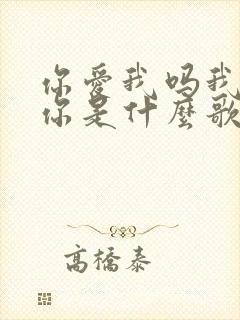 你愛我吗我
你是什麼歌
高橋泰